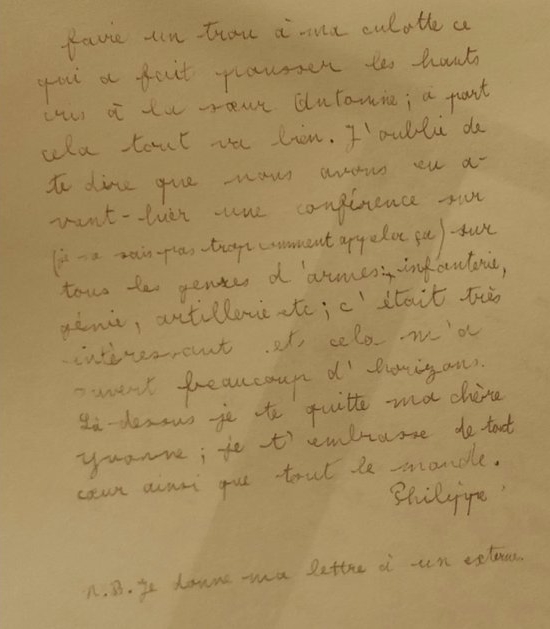 faire un trou à ma culotte ce
qui a fait pousser les hauts
cris à la sœur Antonine; a part
cela tout va bien. J'oublie de
te dire que nous avons eu a-
vant-hier une conférence sur
(je ne sais pas trop comment appeler ça) sur
tous les genres d'armes: infanterie,
génie, artillerie etc; c'était très
intéressant et cela m'a
ouvert beaucoup d'horizons.
Là-dessus je te quitte ma chère
Yvonne; je t'embrasse de tout
cœur ainsi que tout le monde.
Philippe
N.B. Je donne ma lettre à un externe.